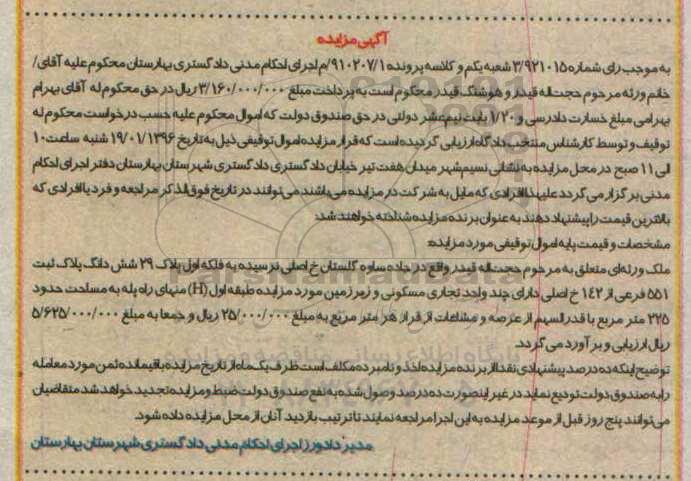 آگهی مزایده
به موجب رای شماره ۳/۹۲۱۰۱۵ شعبه یکم و کلاسه پرونده ۹۱۰۲۰۷/۱/م اجرای احکام مدنی دادگستری بهارستان محکوم علیه آقای/
خانم ورثه مرحوم حجت‌اله قیدر و هوشنگ قیدر محکوم است به پرداخت مبلغ ۳/۱۶۰/۰۰۰/۰۰۰ ریال در حق محکوم له آقای بهرام
بهرامی مبلغ خسارت دادرسی و ۱/۲۰ بابت نیم‌عشر دولتی در حق صندوق دولت که اموال محکوم علیه حسب درخواست محکوم له
توقیف و توسط کارشناس منتخب دادگاه ارزیابی گردیده است که قرار مزایده اموال توقیفی ذیل به تاریخ ۱۹/۰۱/۱۳۹۶ شنبه ساعت ۱۰
الی ۱۱ صبح در محل مزایده به نشانی نسیم‌شهر میدان هفت تیر خیابان دادگستری دادگستری شهرستان بهارستان دفتر اجرای احکام
مدنی برگزار می گردد علیهذا افرادی که مایل به شرکت در مزایده می‌باشند می‌توانند در تاریخ فوق‌الذکر مراجعه و فرد یا افرادی که
بالاترین قیمت را پیشنهاد دهند به عنوان برنده مزایده شناخته خواهند شد:
مشخصات و قیمت پایه اموال توقیفی مورد مزایده:
ملک ورثه‌ای متعلق به مرحوم حجت‌اله قیدر واقع در جاده ساوه گلستان خ اصلی نرسیده به فلکه اول پلاک ۲۹ شش دانگ پلاک ثبت
۵۵۱ فرعی از ۱۴۲ خ اصلی دارای چند واحد تجاری مسکونی و زیرزمین مورد مزایده طبقه اول (H) منهای راه پله به مساحت حدود
۲۲۵ متر مربع با قدرالسهم از عرصه و مشاعات از قرار هر متر مربع به مبلغ ۲۵/۰۰۰/۰۰۰ ریال و جمعا به مبلغ ۵/۶۲۵/۰۰۰/۰۰۰
ریال ارزیابی و برآورد می گردد.
توضیح اینکه ده درصد پیشنهادی نقدا از برنده مزایده اخذ و نامبرده مکلف است ظرف یک‌ماه از تاریخ مزایده باقیمانده ثمن مورد معامله
را به صندوق دولت تودیع نماید در غیر اینصورت ده درصد وصول شده به نفع صندوق دولت ضبط و مزایده تجدید خواهد شد متقاضیان
می‌توانند پنج روز قبل از موعد مزایده به این اجرا مراجعه نمایند تا ترتیب بازدید آنان از محل مزایده داده شود.
مدیر دادورز اجرای احکام مدنی دادگستری شهرستان بهارستان